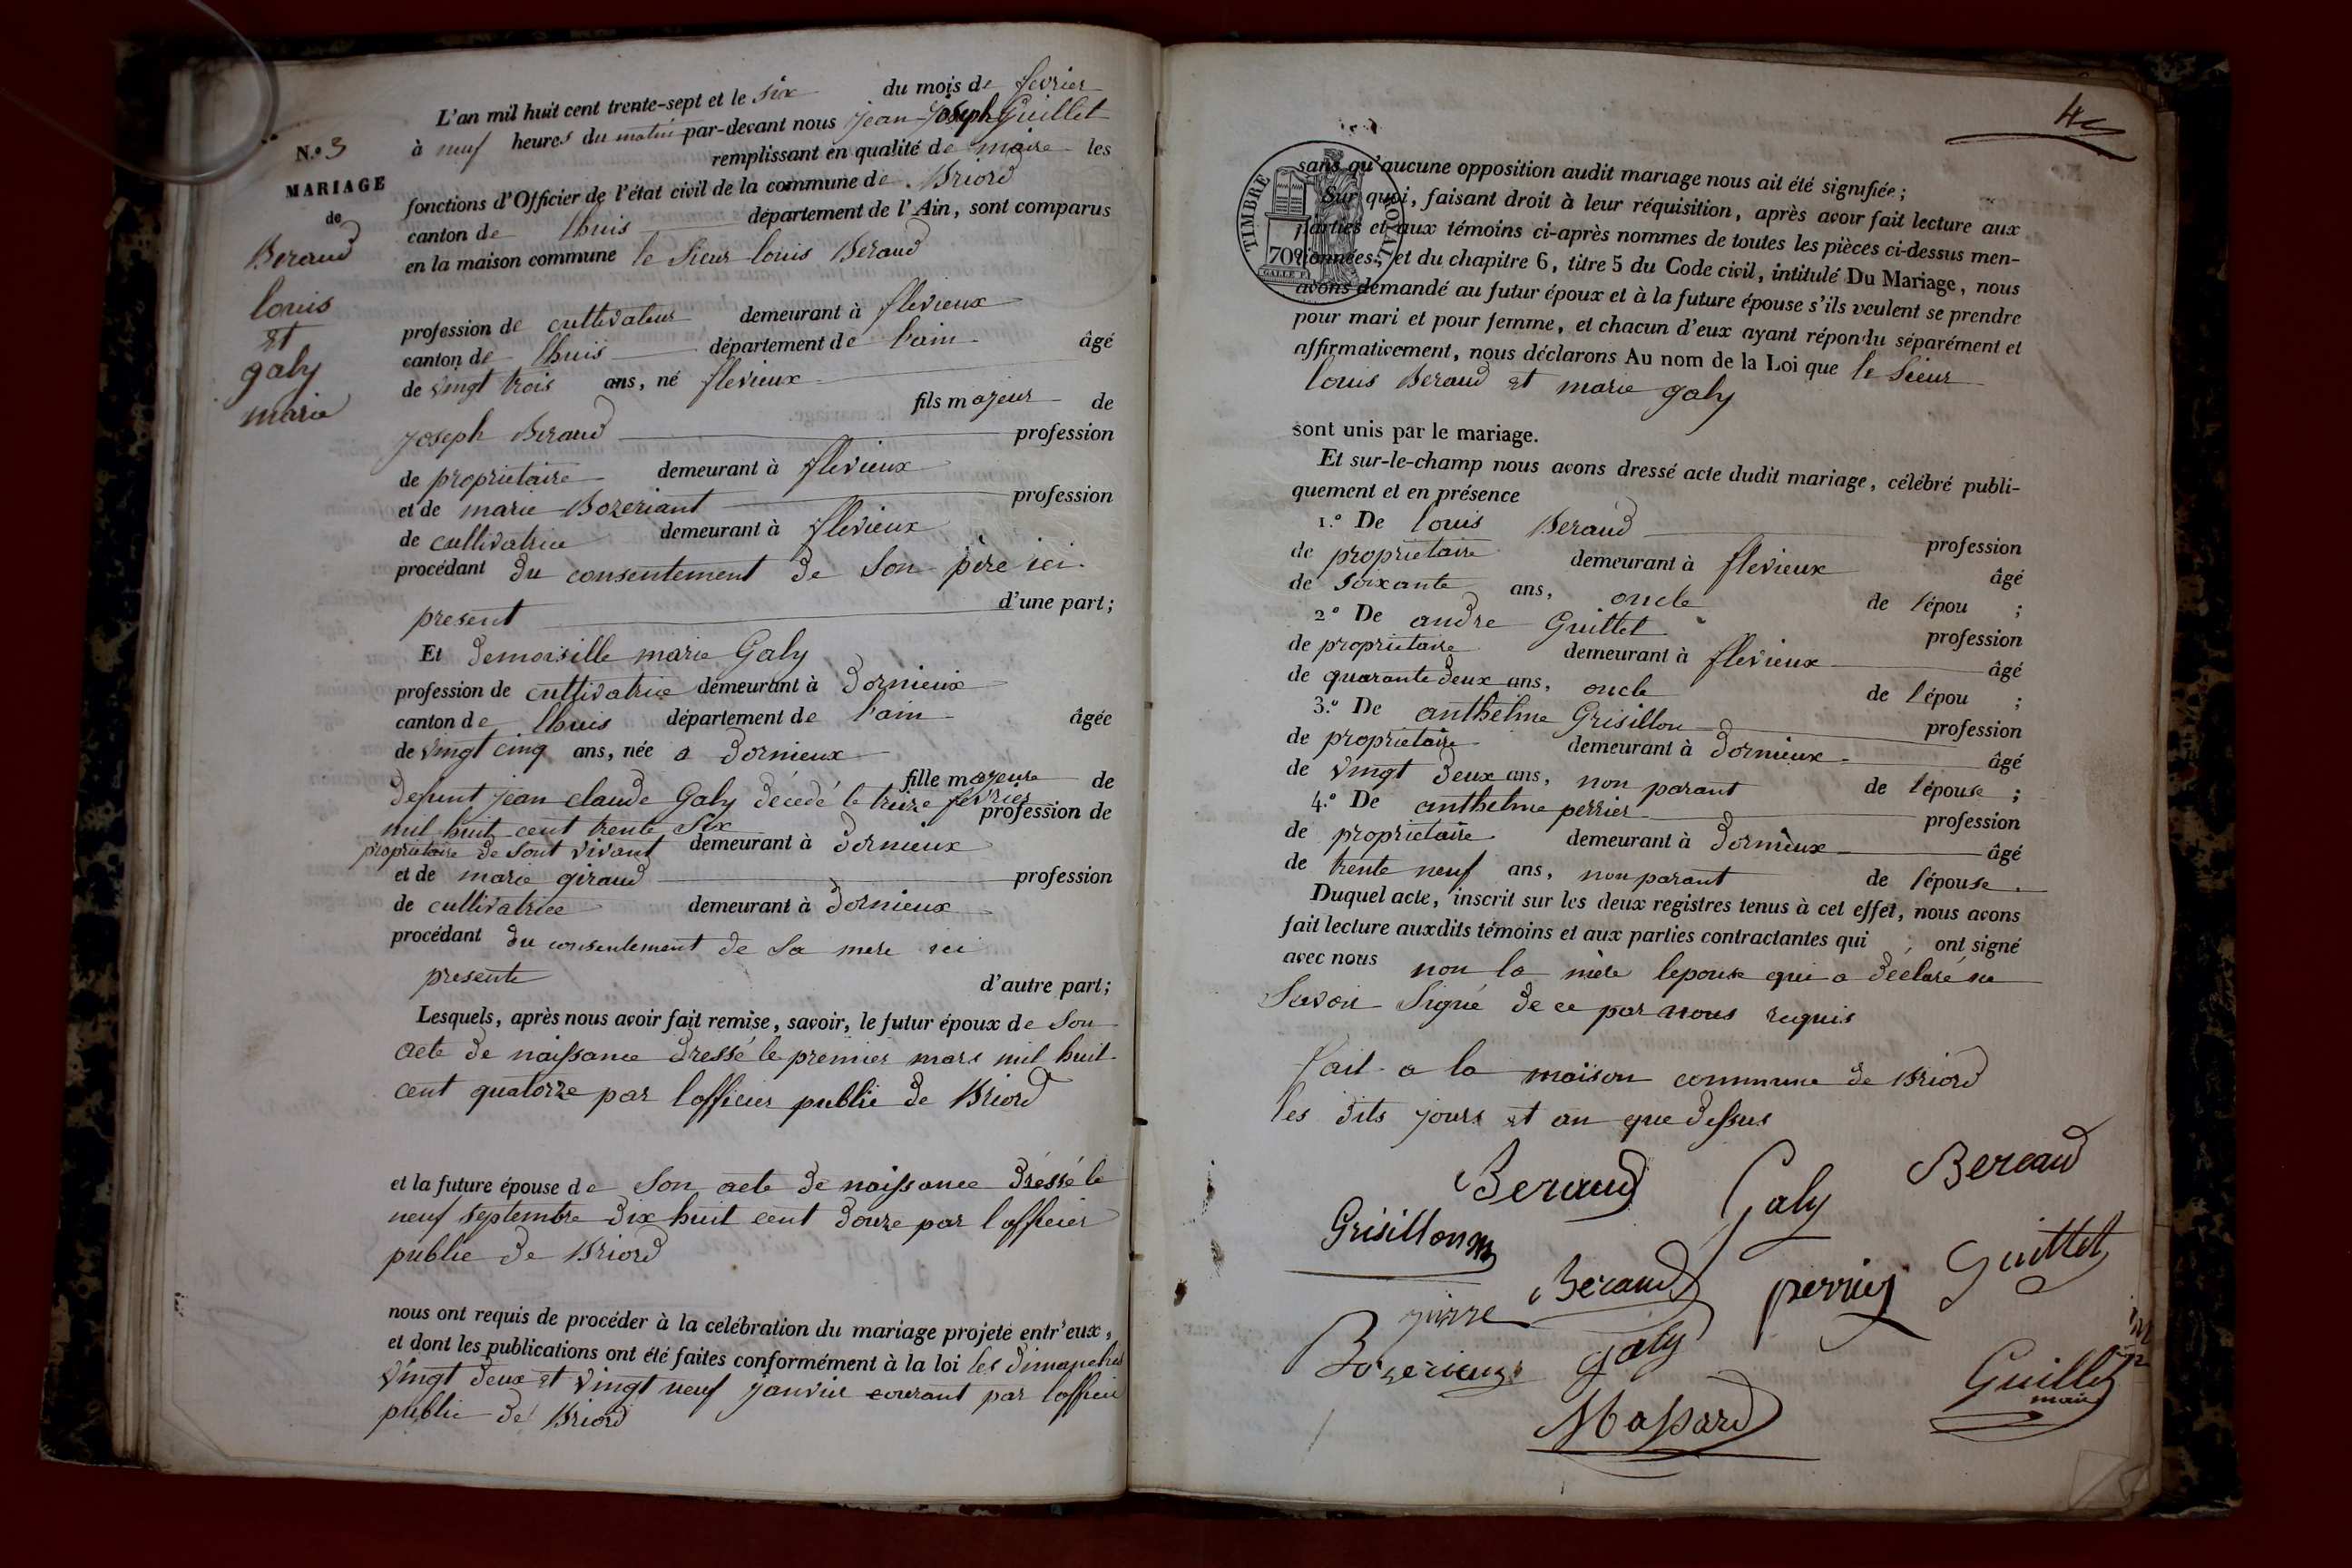 N.º 3
MARIAGE
de
Beraud
louis
et
galy
marie
L'an mil huit cent trente-sept et le six du mois de fevrier
à neuf heures du matin par-devant nous jean joseph Guillet
remplissant en qualité de maire les
fonctions d'Officier de l'état civil de la commune de Briord
canton de lhuis département de l'Ain, sont comparus
en la maison commune le Sieur louis Beraud
profession de cultivateur demeurant à flevieux
canton de lhuis département de l'ain âgé
de vingt trois ans, né flevieux
fils majeur de
joseph Beraud profession
de proprietaire demeurant à flevieux
et de marie Bozeriant profession
de cultivatrice demeurant à flevieux
procédant du consentement de Son père ici
present d'une part;
Et demoiselle marie Galy
profession de cultivatrice demeurant à dornieux
canton de lhuis département de l'ain âgée
de vingt cinq ans, née a dornieux
fille majeure de
defunt jean claude Galy décédé le treize fevrier profession de
mil huit cent trente Six
proprietaire de Sont vivant demeurant à dornieux
et de marie giraud profession
de cultivatrice demeurant à dornieux
procédant du consentement de Sa mere ici
presente d'autre part;
Lesquels, après nous avoir fait remise, savoir, le futur époux de Son
acte de naissance dressé le premier mars mil huit
cent quatorze par l'officier public de Briord
et la future épouse de Son acte de naissance dréssé le
neuf septembre dix huit cent douze par l'officier
public de Briord
nous ont requis de procéder à la célébration du mariage projeté entr'eux,
et dont les publications ont été faites conformément à la loi les dimanches
vingt deux et vingt neuf janvier courant par l'officier
public de Briord
4
TIMBRE ROYAL
70
sans qu'aucune opposition audit mariage nous ait été signifiée;
Sur quoi, faisant droit à leur réquisition, après avoir fait lecture aux
parties et aux témoins ci-après nommes de toutes les pièces ci-dessus men-
tionnées, et du chapitre 6, titre 5 du Code civil, intitulé Du Mariage, nous
avons demandé au futur époux et à la future épouse s'ils veulent se prendre
pour mari et pour femme, et chacun d'eux ayant répondu séparément et
affirmativement, nous déclarons Au nom de la Loi que le Sieur
louis Beraud et marie galy
sont unis par le mariage.
Et sur-le-champ nous avons dressé acte dudit mariage, célébré publi-
quement et en présence
1.º De louis Beraud profession
de proprietaire demeurant à flevieux âgé
de soixante ans, oncle de l'épou ;
2.º De andre Guittet profession
de proprietaire demeurant à flevieux âgé
de quarante deux ans, oncle de l'épou ;
3.º De anthelme Grisillon profession
de proprietaire demeurant à dornieux âgé
de vingt deux ans, non parant de l'épouse ;
4.º De anthelme perrier profession
de proprietaire demeurant à dornieux âgé
de trente neuf ans, non parant de l'épouse .
Duquel acte, inscrit sur les deux registres tenus à cet effet, nous avons
fait lecture auxdits témoins et aux parties contractantes qui ont signé
avec nous non la mère lepouse qui a déclaré ne
Savoir Signé de ce par nous requis
fait a la maison commune de Briord
les dits jours et an que dessus
Beraud Galy Beraud
Grisillon Beraud perrier Guittet
pierre
Bozeriant galy Guillet
maire
Massard